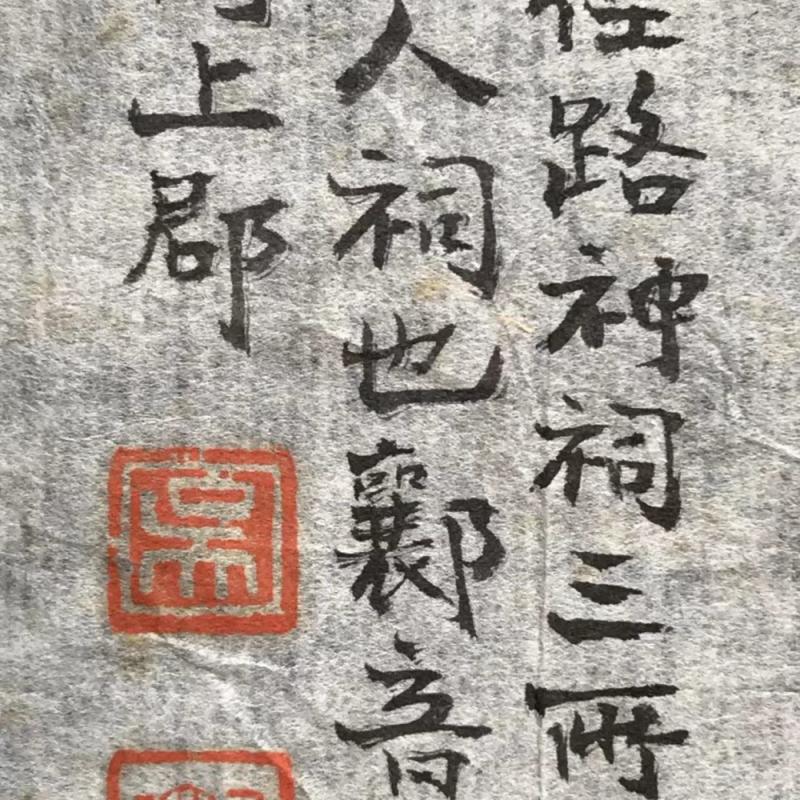 徑路神祠三所
人祠也鄺音
上郡